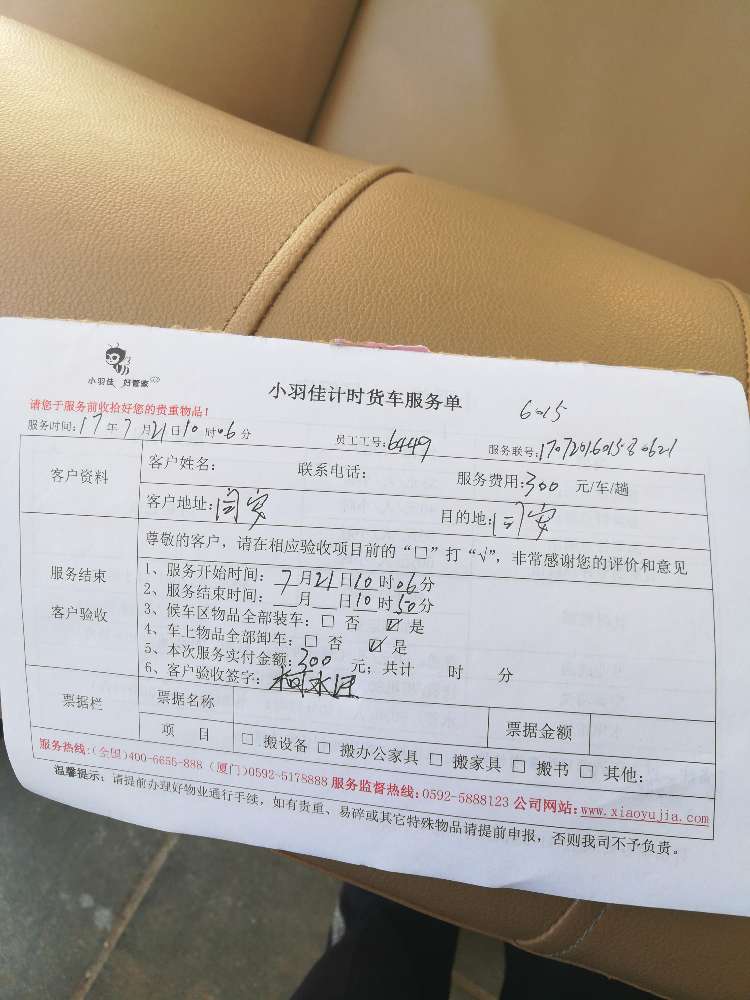 小羽佳 好管家
小羽佳计时货车服务单
6015
请您于服务前收拾好您的贵重物品！
服务时间：17年7月21日10时06分 员工工号：6449 服务联号：
客户资料
客户姓名： 联系电话： 服务费用：300 元/车/趟
客户地址：同安 目的地：同安
服务结束
客户验收
尊敬的客户，请在相应验收项目前的“□”打“√”，非常感谢您的评价和意见
1、服务开始时间：7月21日10时06分
2、服务结束时间：__月__日10时50分
3、候车区物品全部装车：□ 否 ☑ 是
4、车上物品全部卸车：□ 否 ☑ 是
5、本次服务实付金额：300 元；共计 时 分
6、客户验收签字：
票据栏 票据名称 票据金额
项 目 □ 搬设备 □ 搬办公家具 □ 搬家具 □ 搬书 □ 其他：
服务热线：(全国)400-6655-888 (厦门)0592-5178888 服务监督热线：0592-5888123 公司网站：www.xiaoyujia.com
温馨提示：请提前办理好物业通行手续，如有贵重、易碎或其它特殊物品请提前申报，否则我司不予负责。